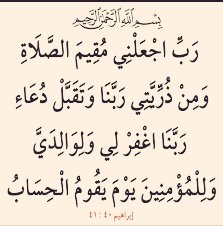 بِسْمِ اللَّهِ الرَّحْمَنِ الرَّحِيمِ
رَبِّ اجْعَلْنِي مُقِيمَ الصَّلَاةِ
وَمِنْ ذُرِّيَّتِي رَبَّنَا وَتَقَبَّلْ دُعَاءِ
رَبَّنَا اغْفِرْ لِي وَلِوَالِدَيَّ
وَلِلْمُؤْمِنِينَ يَوْمَ يَقُومُ الْحِسَابُ
إبراهيم ٤٠ : ٤١